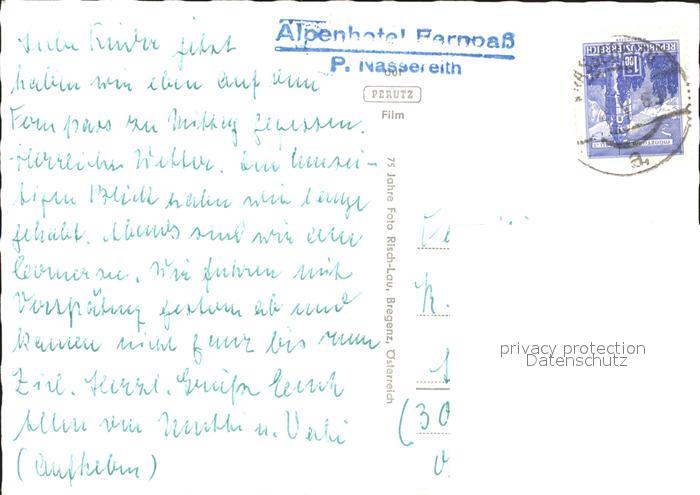 Liebe Kinder jetzt
haben wir eben auf dem
Fernpass zu Mittag gegessen.
Herrliches Wetter. Den
Blick haben wir lange
gehabt. Abends sind wir am
Comersee. Wir fuhren mit
Verspätung gestern ab und
kamen nicht ganz bis zum
Ziel. Herzl. Grüße Euch
Allen von Mutti u. Vati
(Aufheben)
Alpenhotel Fernpaß
P. Nassereith
PERUTZ
Film
75 Jahre Foto Risch-Lau, Bregenz, Österreich
REPUBLIK ÖSTERREICH
(30
privacy protection
Datenschutz